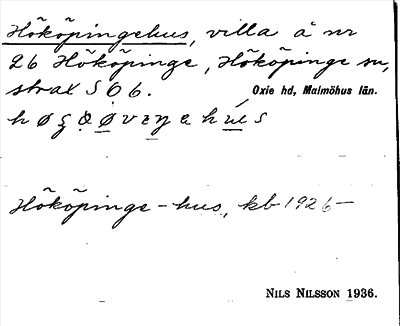 Hököpingehus, villa å nr
26 Hököpinge, Hököpinge sn,
strax S O 6.
Oxie hd, Malmöhus län.
Hököpinge-hus, kb 1926-
NILS NILSSON 1936.